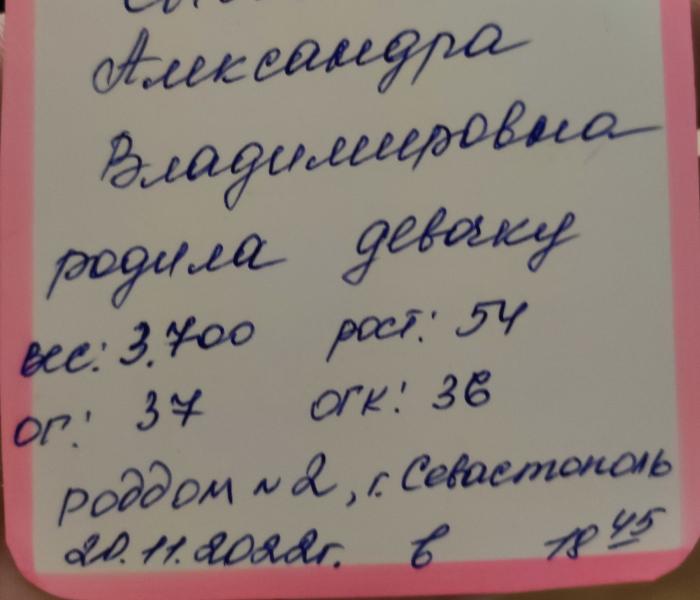 Александра
Владимировна
родила девочку
вес: 3.700 рост: 54
ог: 37 огк: 36
роддом №2, г. Севастополь
20.11.2022г. в 18 45